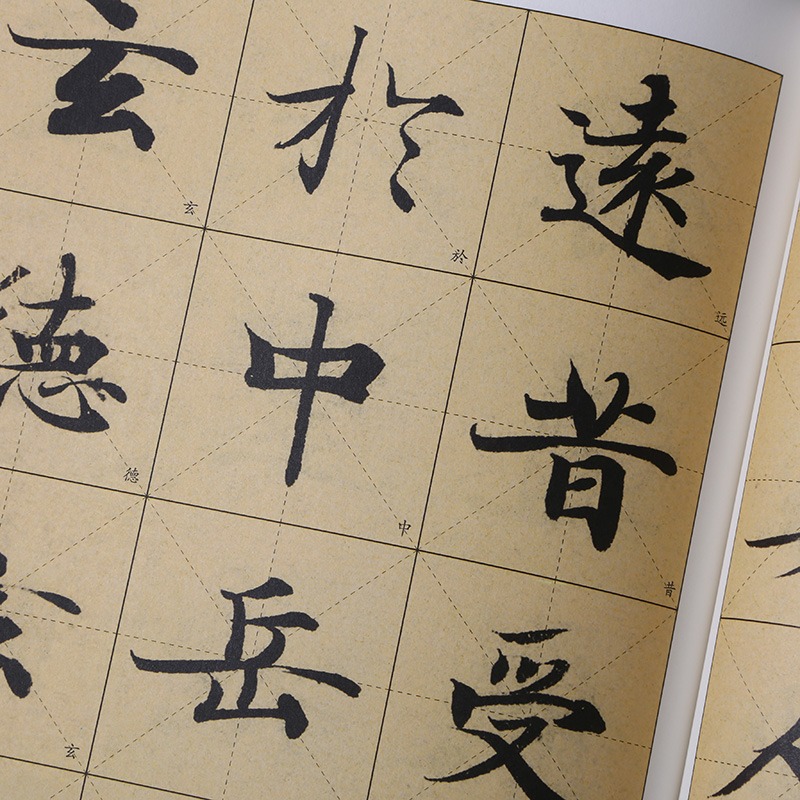 遠
远
昔
昔
受
於
於
中
中
岳
玄
玄
德
德
玄
玄